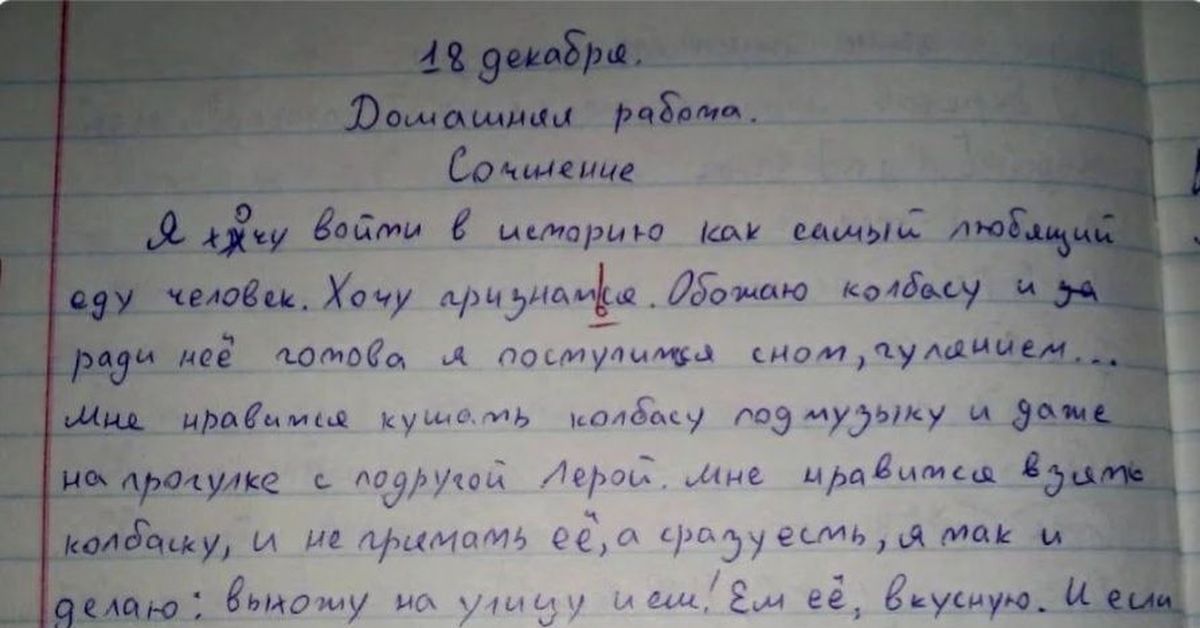 18 декабря.
Домашняя работа.
Сочинение
Я хочу войти в историю как самый любящий
еду человек. Хочу признаться. Обожаю колбасу и за
ради неё готова я поступится сном, гулянием...
Мне нравится кушать колбасу под музыку и даже
на прогулке с подругой Лерой. Мне нравится взять
колбаску, и не примать её, а сразу есть, я так и
делаю: выхожу на улицу и ем! Ем её, вкусную. И если